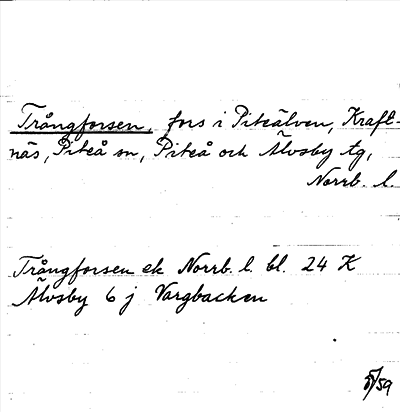 Trångforsen, fors i Piteälven, Kraft-
näs, Piteå sn, Piteå och Älvsby tg,
Norrb. l.
Trångforsen ek Norrb. l. bl. 24 K
Älvsby 6 j Vargbacken